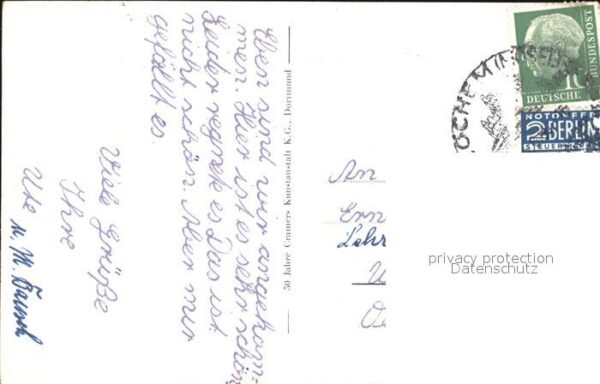 Eben sind wir angekom=
men. Hier ist es sehr schön
Leider regnet es. Das ist
nicht schön. Aber mir
gefällt es.
Viele Grüße
Ihre
Ute
u. M.
50 Jahre Cramers Kunstanstalt K.G., Dortmund
COCHEM
10
DEUTSCHE
BUNDESPOST
NOTOPFER
2 BERLIN
STEUERMARKE
An
Ern
Lehr
privacy protection
Datenschutz